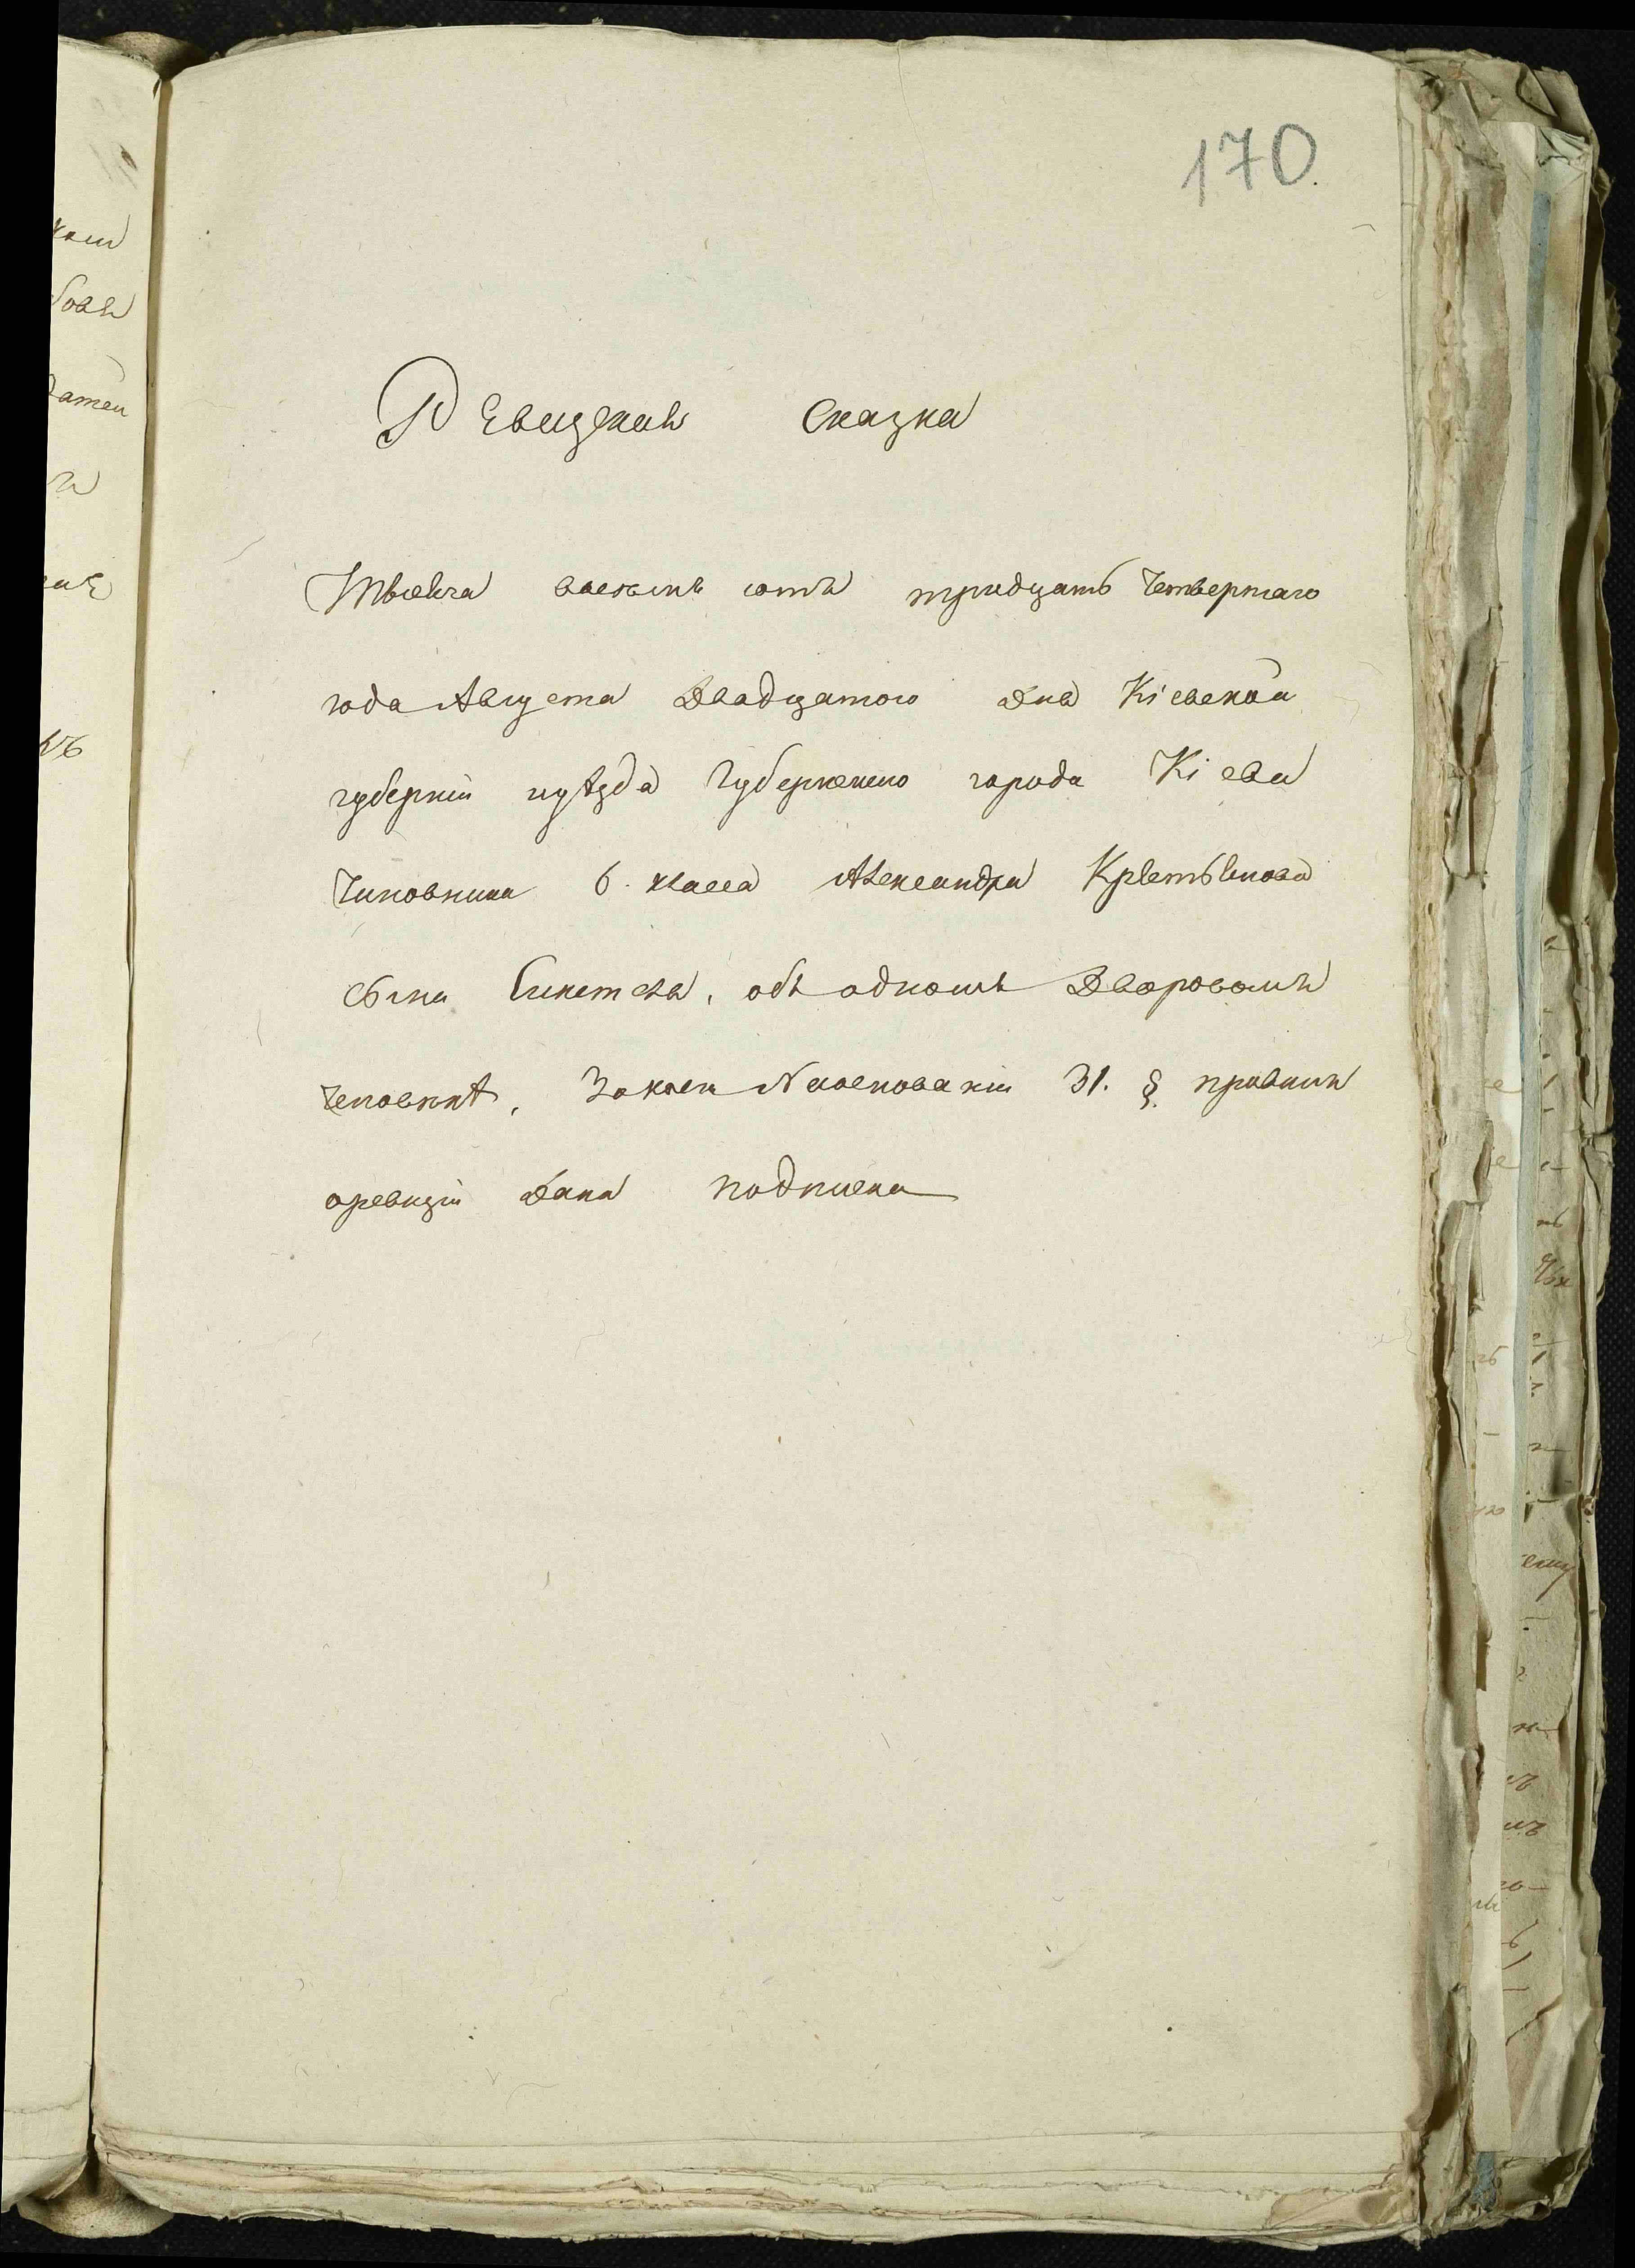 170.
Ревизская Сказка
Тысяча восемь сотъ тридцать Четвертаго
года Августа Двадцатого Дня Кіевской
губерніи иуѣзда Губернскаго города Кіева
Чиновника 6. класса Александра
сына объ одномъ Дворовомъ
Человѣкѣ, Закоего Наоснованіи 31. § правилъ
оревизіи Дана подписка